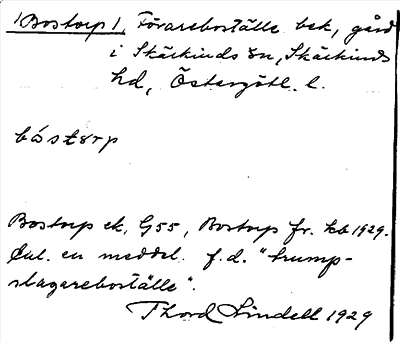 1Bostorp1, Förareboställe bek, gård
i Skärkinds sn, Skärkinds
hd, Östergötl. l.
båstørp
Bostorp ek, G55, Bostorp fr. kb 1929.
Enl. en meddel. f.d. "trump-
slagareboställe".
Thord Lindell 1929